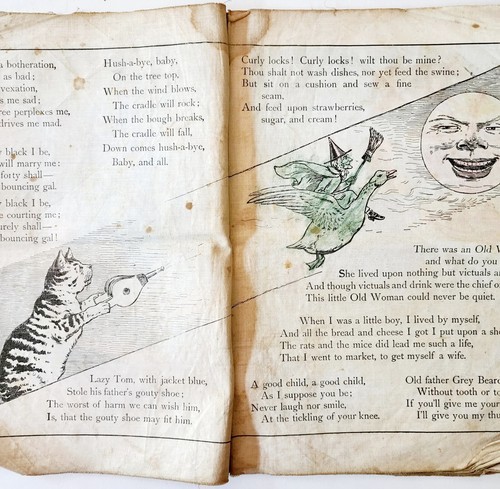 a botheration,
as bad;
vexation,
s me sad;
ree perplexes me,
drives me mad.
y black I be,
will marry me:
forty shall—
bouncing gal.
y black I be,
e courting me;
urely shall—
bouncing gal!
Hush-a-bye, baby,
On the tree top,
When the wind blows,
The cradle will rock;
When the bough breaks,
The cradle will fall,
Down comes hush-a-bye,
Baby, and all.
Lazy Tom, with jacket blue,
Stole his father's gouty shoe;
The worst of harm we can wish him,
Is, that the gouty shoe may fit him.
Curly locks! Curly locks! wilt thou be mine?
Thou shalt not wash dishes, nor yet feed the swine;
But sit on a cushion and sew a fine
seam,
And feed upon strawberries,
sugar, and cream!
There was an Old W
and what do you
She lived upon nothing but victuals a
And though victuals and drink were the chief o
This little Old Woman could never be quiet.
When I was a little boy, I lived by myself,
And all the bread and cheese I got I put upon a she
The rats and the mice did lead me such a life,
That I went to market, to get myself a wife.
A good child, a good child,
As I suppose you be;
Never laugh nor smile,
At the tickling of your knee.
Old father Grey Bear
Without tooth or to
If you'll give me your
I'll give you my thu